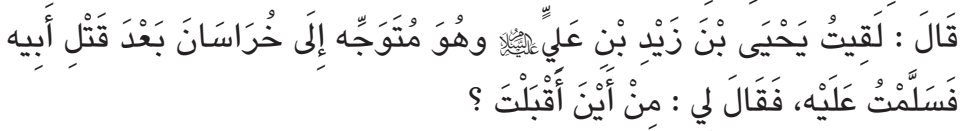 قَالَ : لَقِيتُ يَحْيَى بْنَ زَيْدِ بْنِ عَلِيٍّ عليه السلام وهُوَ مُتَوَجِّه إِلَى خُرَاسَانَ بَعْدَ قَتْلِ أَبِيه
فَسَلَّمْتُ عَلَيْه، فَقَالَ لي : مِنْ أَيْنَ أَقْبَلْتَ ؟